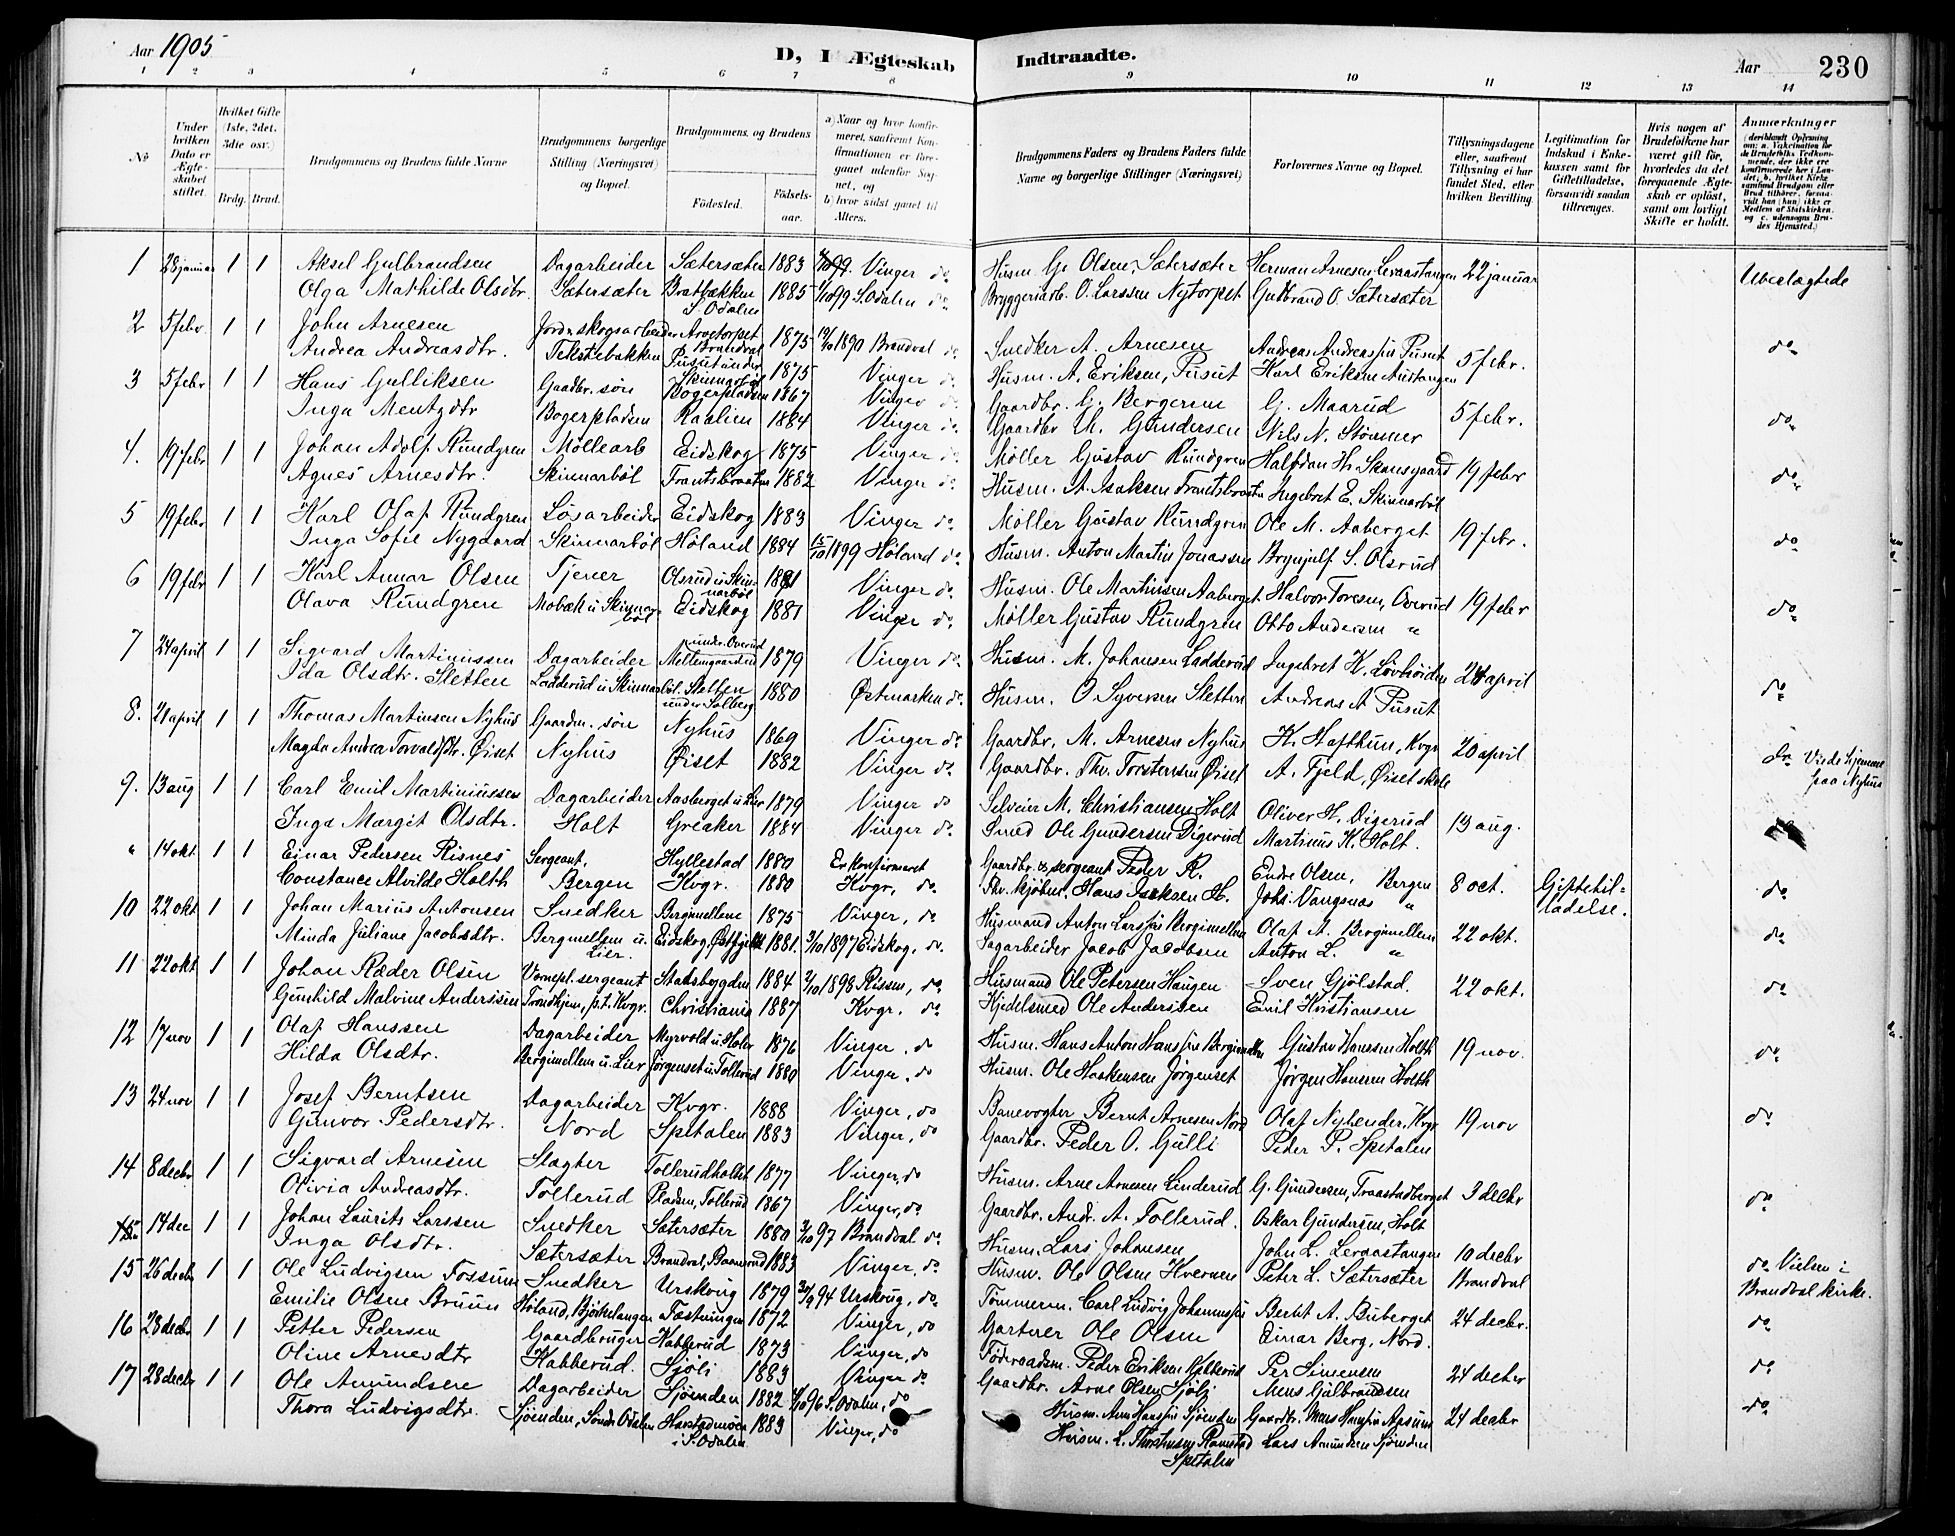 Aar 1905.
D, I Ægteskab Indtraadte.
Aar 230
1 2 3 4 5 6 7 8 9 10 11 12 13 14
No
Under hvilken Dato er Ægteskabet stiftet.
Hvilket Gifte (1ste, 2det, 3die osv.)
Brdg. Brud.
Brudgommens og Brudens fulde Navne
Brudgommens borgerlige Stilling (Næringsvei) og Bopæl.
Brudgommens og Brudens
Fødested. Fødselsaar.
a) Naar og hvor konfirmeret, saafremt Konfirmationen er foregaaet udenfor Sognet, og
b) hvor sidst gaaet til Alters.
Brudgommens Faders og Brudens Faders fulde Navne og borgerlige Stillinger (Næringsvei)
Forlovernes Navne og Bopæl.
Tillysningsdagene eller, saafremt Tillysning ei har fundet Sted, efter hvilken Bevilling.
Legitimation for Indskud i Enkekassen samt for Giftetilladelse, forsaavidt saadan tiltrænges.
Hvis nogen af Brudefolkene har været gift før, hvorledes da det foregaaende Ægteskab er opløst, samt om lovligt Skifte er holdt.
Anmærkninger
(deriblandt Oplysning om: a. Vakcination for de Brudefolks Vedkommende, der ikke ere konfirmerede her i Landet; b. hvilket Kirkesamfund Brudgom eller Brud tilhører, forsaavidt han (hun) ikke er Medlem af Statskirken, og c. udensogns Brudes Hjemsted.)
1 28 januar 1 1 Aksel Gulbrandsen Dagarbeider Sætersæter 1883 Vinger do Husm. G. Olsen, Sætersæter Herman Arnesen Levaastangen 22 januar Ubeslægtede
Olga Mathilde Olsdtr. Sætersæter Brætbækken S. Odalen 1885 S. Odalen do Bryggeriarb. O. Larssen Nytorpet Gulbrand O. Sætersæter
2 5 febr. 1 1 John Arnesen Jord- skogsarbeider Arnetorpet Brandval 1875 1890 Brandval do Snedker A. Arnesen Andreas Andreassen Pusut 5 febr. do
Andrea Andreasdtr. Tekstebakken Pusut under Skinnarbøl 1875 Vinger do Husm. A. Eriksen, Pusut Karl Eriksen Austangen
3 5 febr 1 1 Hans Gulliksen Gaardbr. søn Bogerpladsen 1867 Vinger do Gaardbr. G. Bergersen G. Maarud 5 febr. do
Inga Mentzdtr Bogerpladsen Raalien 1884 Vinger do Gaardbr M. Gundersen Nils N. Stømner
4. 19 febr 1 1 Johan Adolf Rundgren Møllearb Eidskog 1875 Vinger do Møller Gustav Rundgren Halfdan H. Skansgaard 19 febr do
Agnes Arnesdtr. Skinnarbøl Frantsbraaten 1882 Vinger do Husm. A. Isaksen Frantsbraaten Ingebret E. Skinnarbøl
5 19 febr 1 1 Karl Olaf Rundgren Løsarbeider Eidskog 1883 Vinger do Møller Gustav Rundgren Ole M. Aaberget 19 febr. do
Inga Sofie Nygaard Skinnarbøl Høland 1884 15/10 1899 Høland do Husm. Anton Martin Jonassen Brynjulf S. Olsrud
6 19 febr 1 1 Karl Annar Olsen Tjener Olsrud u Skinnarbøl 1881 Vinger do Husm. Ole Martinusen Aaberget Halvor Toresen, Overud 19 febr do
Olava Rundgren Mobæk u Skinnarbøl Eidskog 1881 Vinger do Møller Gustav Rundgren Otto Andersen "
7 24 april 1 1 Sigvard Martinussen Dagarbeider Mellemgaarden under Overud 1879 Vinger do Husm. M. Johansen Ladderud Ingebret K. Løvhøiden 24 april do
Ida Olsdtr. Sletten Ladderud u Skinnarbøl Sletten under Solberg 1880 Østmarken do Husm. O Syversen Sletten Andreas A Pusut
8. 21 april 1 1 Thomas Martinsen Nyhus Gaardm. søn Nyhus 1869 Vinger do Gaardbr. M. Arnesen Nyhus K. Hafthun, Kvgr 20 april do Viede hjemme paa Nyhus
Magda Andrea Torvaldsdtr. Øiset Nyhus Øiset 1882 Vinger do Gaardbr. Thv. Torstensen Øiset A. Fjeld, Øiset skole
9. 13 aug 1 1 Carl Emil Martinussen Dagarbeider Aasberget u Lier 1879 Vinger do Selveier M. Christiansen Holt Oliver H. Digerud 13 aug.
Inga Margit Olsdtr. Holt Greaker 1884 Vinger do Smed Ole Gundersen Digerud Martinus K. Holt.
" 14 okt 1 1 Einar Pedersen Risnes Sergeant, Hyllestad 1880 Er konfirmeret Gaardbr. & sergeant Peder R. Endre Olsen, Bergen 8 oct. Giftetilladelse. do
Constance Alvilde Holth Bergen Kvgr. 1880 Kvgr, do Thv. kjøbm. Hans Isaksen H. Johs. Vangsnæs "
10 22 okt 1 1 Johan Marius Antonsen Snedker Bergimellene 1875 Vinger, do Husmand Anton Larssen Bergimellem Olaf A. Bergimellem 22 okt. do
Minda Juliane Jacobsdtr. Bergimellem u. Lier Eidskog, Østfjeld 1881. 3/10 1897 Eidskog, do Dagarbeider Jacob Jacobsen Anton L. "
11 22 okt 1 1 Johan Ræder Olsen Vernepl. sergeant Stadsbygden 1884 2/10 1898 Rissen, do Husmand Ole Petersen Haugen Sven Gjølstad. 22 okt. do
Gunhild Malvine Anderssen Trondhjem, p.t. Kvgr. Christiania 1887 Kvgr. do Kjedelsmed Ole Anderssen Emil Kristiansen
12 17 nov 1 1 Olaf Hanssen Dagarbeider Myrvold u Holer 1876 Vinger. do Husm. Hans Anton Hanssen Bergimellem Gustav Hanssen Holth 19 nov. do
Hilda Olsdtr. Bergimellem u. Lier Jørgenset u Tollerud 1880 Vinger. do Husm. Ole Haakensen Jørgenset Jørgen Hanssen Holth
13 24 nov 1 1 Josef Berntsen Dagarbeider Kvgr. 1888 Vinger, do Banevogter Bernt Arnesen Nord Olaf Nyhender, Kvgr 19 nov do
Gunvor Pedersdtr. Nord Spetalen 1883 Vinger, do Gaardbr. Peder O. Gulli Peder P. Spetalen
14 8 decbr 1 1 Sigvard Arnesen Slagter Tollerudholtet 1877 Vinger, do Husm. Arne Arnesen Linderud G. Gundersen, Traastadberget 3 decbr do
Olivia Andreasdtr. Tollerud Pladsen, Tollerud 1867 Vinger, do Gaardbr. Andr. A. Tollerud. Oskar Gundersen, Holt
14 dec 1 1 Johan Laurits Larssen Snedker Sætersæter 1880 3/10 97 Brandval do Husm. Lars Johansen John L. Levaastangen 10 decbr Brandval do Vielsen i Brandval kirke.
Inga Olsdtr. Sætersæter Brandval, Baanerud 1883 Vinger, do Husm. Ole Olsen Kvernen Peter L. Sætersæter
15 26 decbr 1 1 Ole Ludvigsen Fossum Snedker Urskoug 1879 30/9 94 Urskoug, do Tømmerm. Carl Ludvig Johannessen Bernt A. Buberget 24 decbr. do
Emilie Olsen Bruun Høland, Bjørkelangen Fæstningen 1872 Vinger, do Gartner Ole Olsen Einar Berg, Nord.
16 28 decbr 1 1 Petter Pedersen Gaardbruger Kabberud 1873 Vinger, do Føderaadsm. Peder Eriksen Kabberud Per Simensen 24 decbr do
Oline Arnesdtr Kabberud. Sjøli 1883 Vinger do Gaardbr. Arne Olsen Sjøli Mons Gulbrandsen
17 28 decbr 1 1 Ole Amundsen Dagarbeider Sjøenden 1882 96 S. Odalen, do Husm. Am. Hanssen Sjøenden Gaardbr. Mons Hanssen Apsum 24 decbr do
Thora Ludvigsdtr. Sjøenden, Søndr Odalen Harstadmoen i S. Odalen 1883 Vinger, do Husm. L. Thorstensen Ramstad Spetalen Lars Amundsen Sjøenden